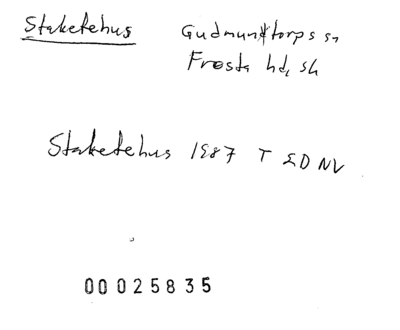 Staketehus Gudmuntorps sn
Frosta hd, sk
Staketehus 1987 T 2D NV
00025835